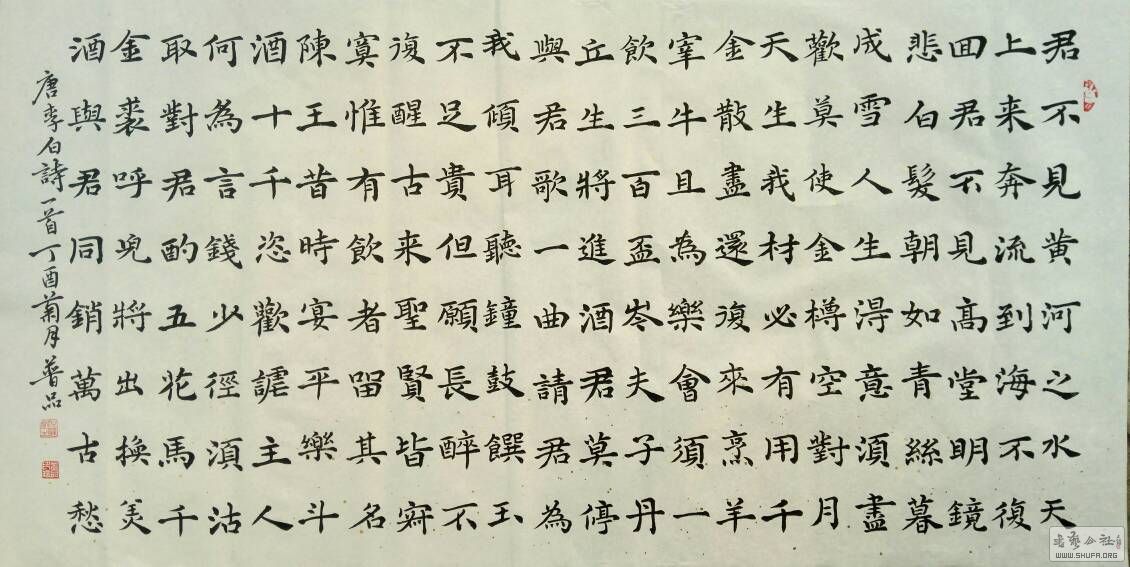 君不見黄河之水天
上来奔流到海不復
囬君不見高堂明鏡
悲白髮朝如青絲暮
成雪人生得意須盡
歡莫使金樽空對月
天生我材必有用千
金散盡還復來烹羊
宰牛且為樂會須一
飲三百盃岑夫子丹
丘生將進酒君莫停
與君歌一曲請君為
我傾耳聽鐘鼓饌玉
不足貴但願長醉不
復醒古来聖賢皆寂
寞惟有飲者留其名
陳王昔時宴平樂斗
酒十千恣歡謔主人
何為言錢少徑須沽
取對君酌五花馬千
金裘呼兒將出換美
酒與君同銷萬古愁
唐李白詩一首丁酉菊月普品
書藝公社
WWW.SHUFA.ORG